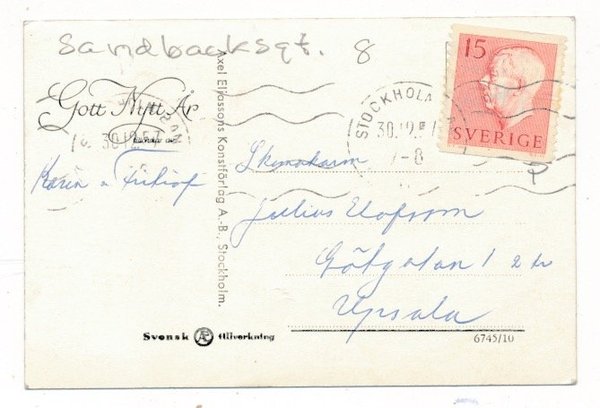 Sandbacksgt. 8
15
SVERIGE
STOCKHOLM
30.12.57
7-8
STOCKHOLM
30.12.57
Gott Nytt År
önskar
Karin o Fritiof
Axel Eliassons Konstförlag A.-B., Stockholm.
Julius Elofsson
Götgatan 1 2 tr
Upsala
Svensk AE tillverkning
6745/10